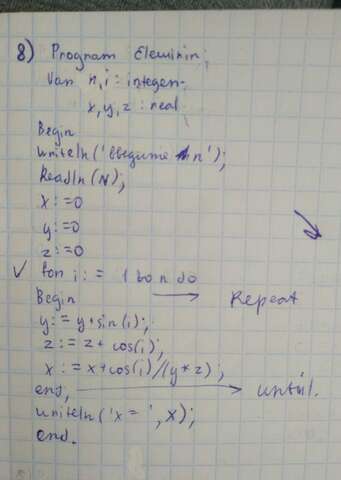 8) Program Elewinin;
Var n,i: integer;
x,y,z: real
Begin
writeln('Введите n');
Readln(N);
x:=0
y:=0
z:=0
✓ for i:= 1 to n do
Begin → Repeat
y:=y+sin(i);
z:=z+cos(i);
x:=x+cos(i)/(y*z);
end; → until.
writeln('x=', x);
end.